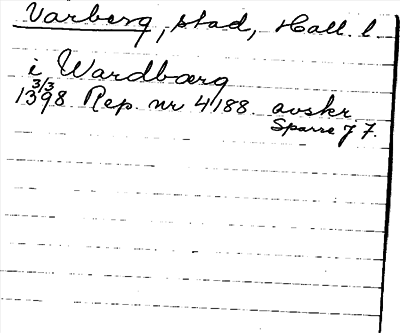 Varberg, stad, Hall. l.
i Wardbærg
3/3
1398 Rep. nr 4188. avskr.
Sparre J 7.